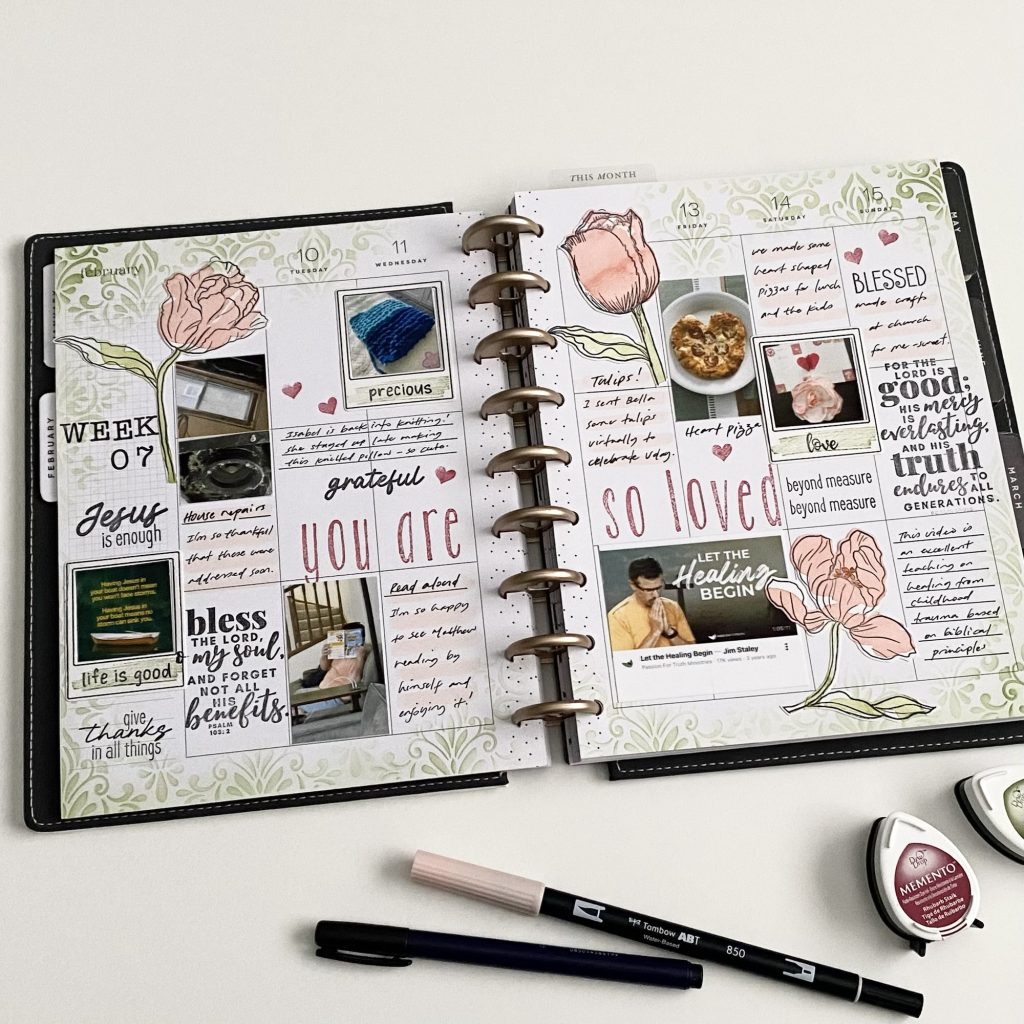 THIS MONTH
february
10
TUESDAY
11
WEDNESDAY
WEEK
07
Jesus
is enough
Having Jesus in
your boat doesn't mean
you won't face storms.
Having Jesus in
your boat means no
storm can sink you.
life is good
give
thanks
in all things
FEBRUARY
House repairs
I'm so thankful
that these were
addressed soon.
bless
THE LORD,
O my soul,
AND FORGET
NOT ALL
HIS
benefits.
PSALM
103:2
precious
Isabel is back into knitting!
she stayed up late making
this knitted pillow - so cute.
grateful
you are
Read aloud
I'm so happy
to see Matthew
reading by
himself and
enjoying it!
13
FRIDAY
14
SATURDAY
15
SUNDAY
Tulips!
I sent Bella
some tulips
virtually to
celebrate Vday.
Heart Pizza
we made some
heart shaped
pizzas for lunch
and the kids
BLESSED
made crafts
at church
for me -sweet.
love
so loved
beyond measure
beyond measure
FOR THE
LORD IS
good;
HIS mercy
IS
everlasting,
AND HIS
truth
endures TO
ALL
GENERATIONS.
LET THE
Healing
BEGIN
1:05:11
Let the Healing Begin — Jim Staley
Passion For Truth Ministries 17K views · 3 years ago
This video is
an excellent
teaching on
healing from
childhood
trauma based
on biblical
principles
MAY
MARCH
Tombow ABT
Water-Based
850
Dew
Drop
MEMENTO
Rhubarb Stalk
Tige de Rhubarbe
Tallo de Ruibarbo